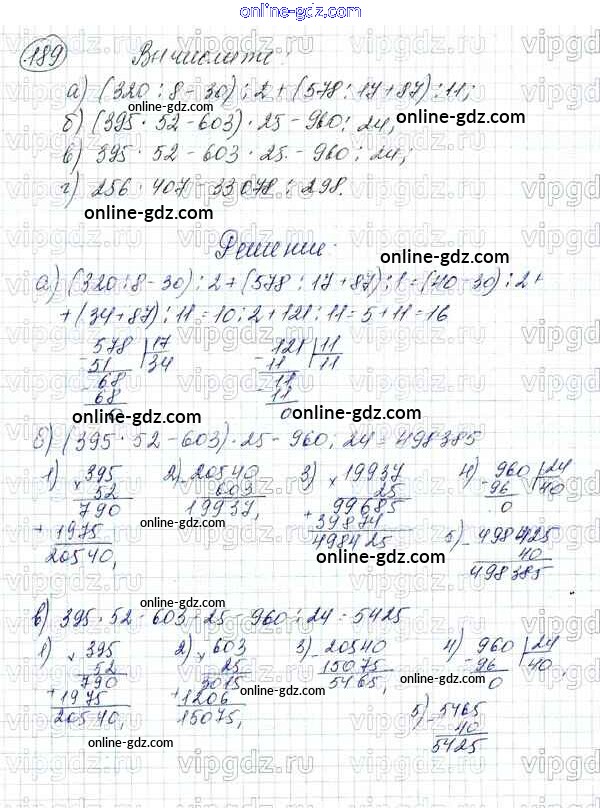 online-gdz.com
189 Вычислите:
а) (320 : 8 - 30) : 2 + (578 : 17 + 87) : 11;
online-gdz.com
б) (395 · 52 - 603) · 25 - 960 : 24;
в) 395 · 52 - 603 · 25 - 960 : 24;
online-gdz.com
г) 256 · 407 - 33078 : 298.
online-gdz.com
Решение:
online-gdz.com
а) (320 : 8 - 30) : 2 + (578 : 17 + 87) : 1 = (40 - 30) : 2 +
+ (34 + 87) : 11 = 10 : 2 + 121 : 11 = 5 + 11 = 16
578 17 121 11
- 51 34 - 11 11
- 68 - 11
68 11
0 0
online-gdz.com
б) (395 · 52 - 603) · 25 - 960 : 24 = 498385
1) × 395 2) - 20540 3) × 19937 4) - 960 24
52 603 25 96 40
790 19937, 99685 0
+ 1975 + 39874 5) - 498425
20540, 498425 40
498385
online-gdz.com
online-gdz.com
online-gdz.com
online-gdz.com
в) 395 · 52 - 603 · 25 - 960 : 24 = 5425
1) × 395 2) × 603 3) - 20540 4) - 960 24
52 25 15075 96 40,
790 3015 5465, 0
+ 1975 + 1206 5) - 5465
20540, 15075, 40
5425
online-gdz.com
online-gdz.com
online-gdz.com
vipgdz.ru